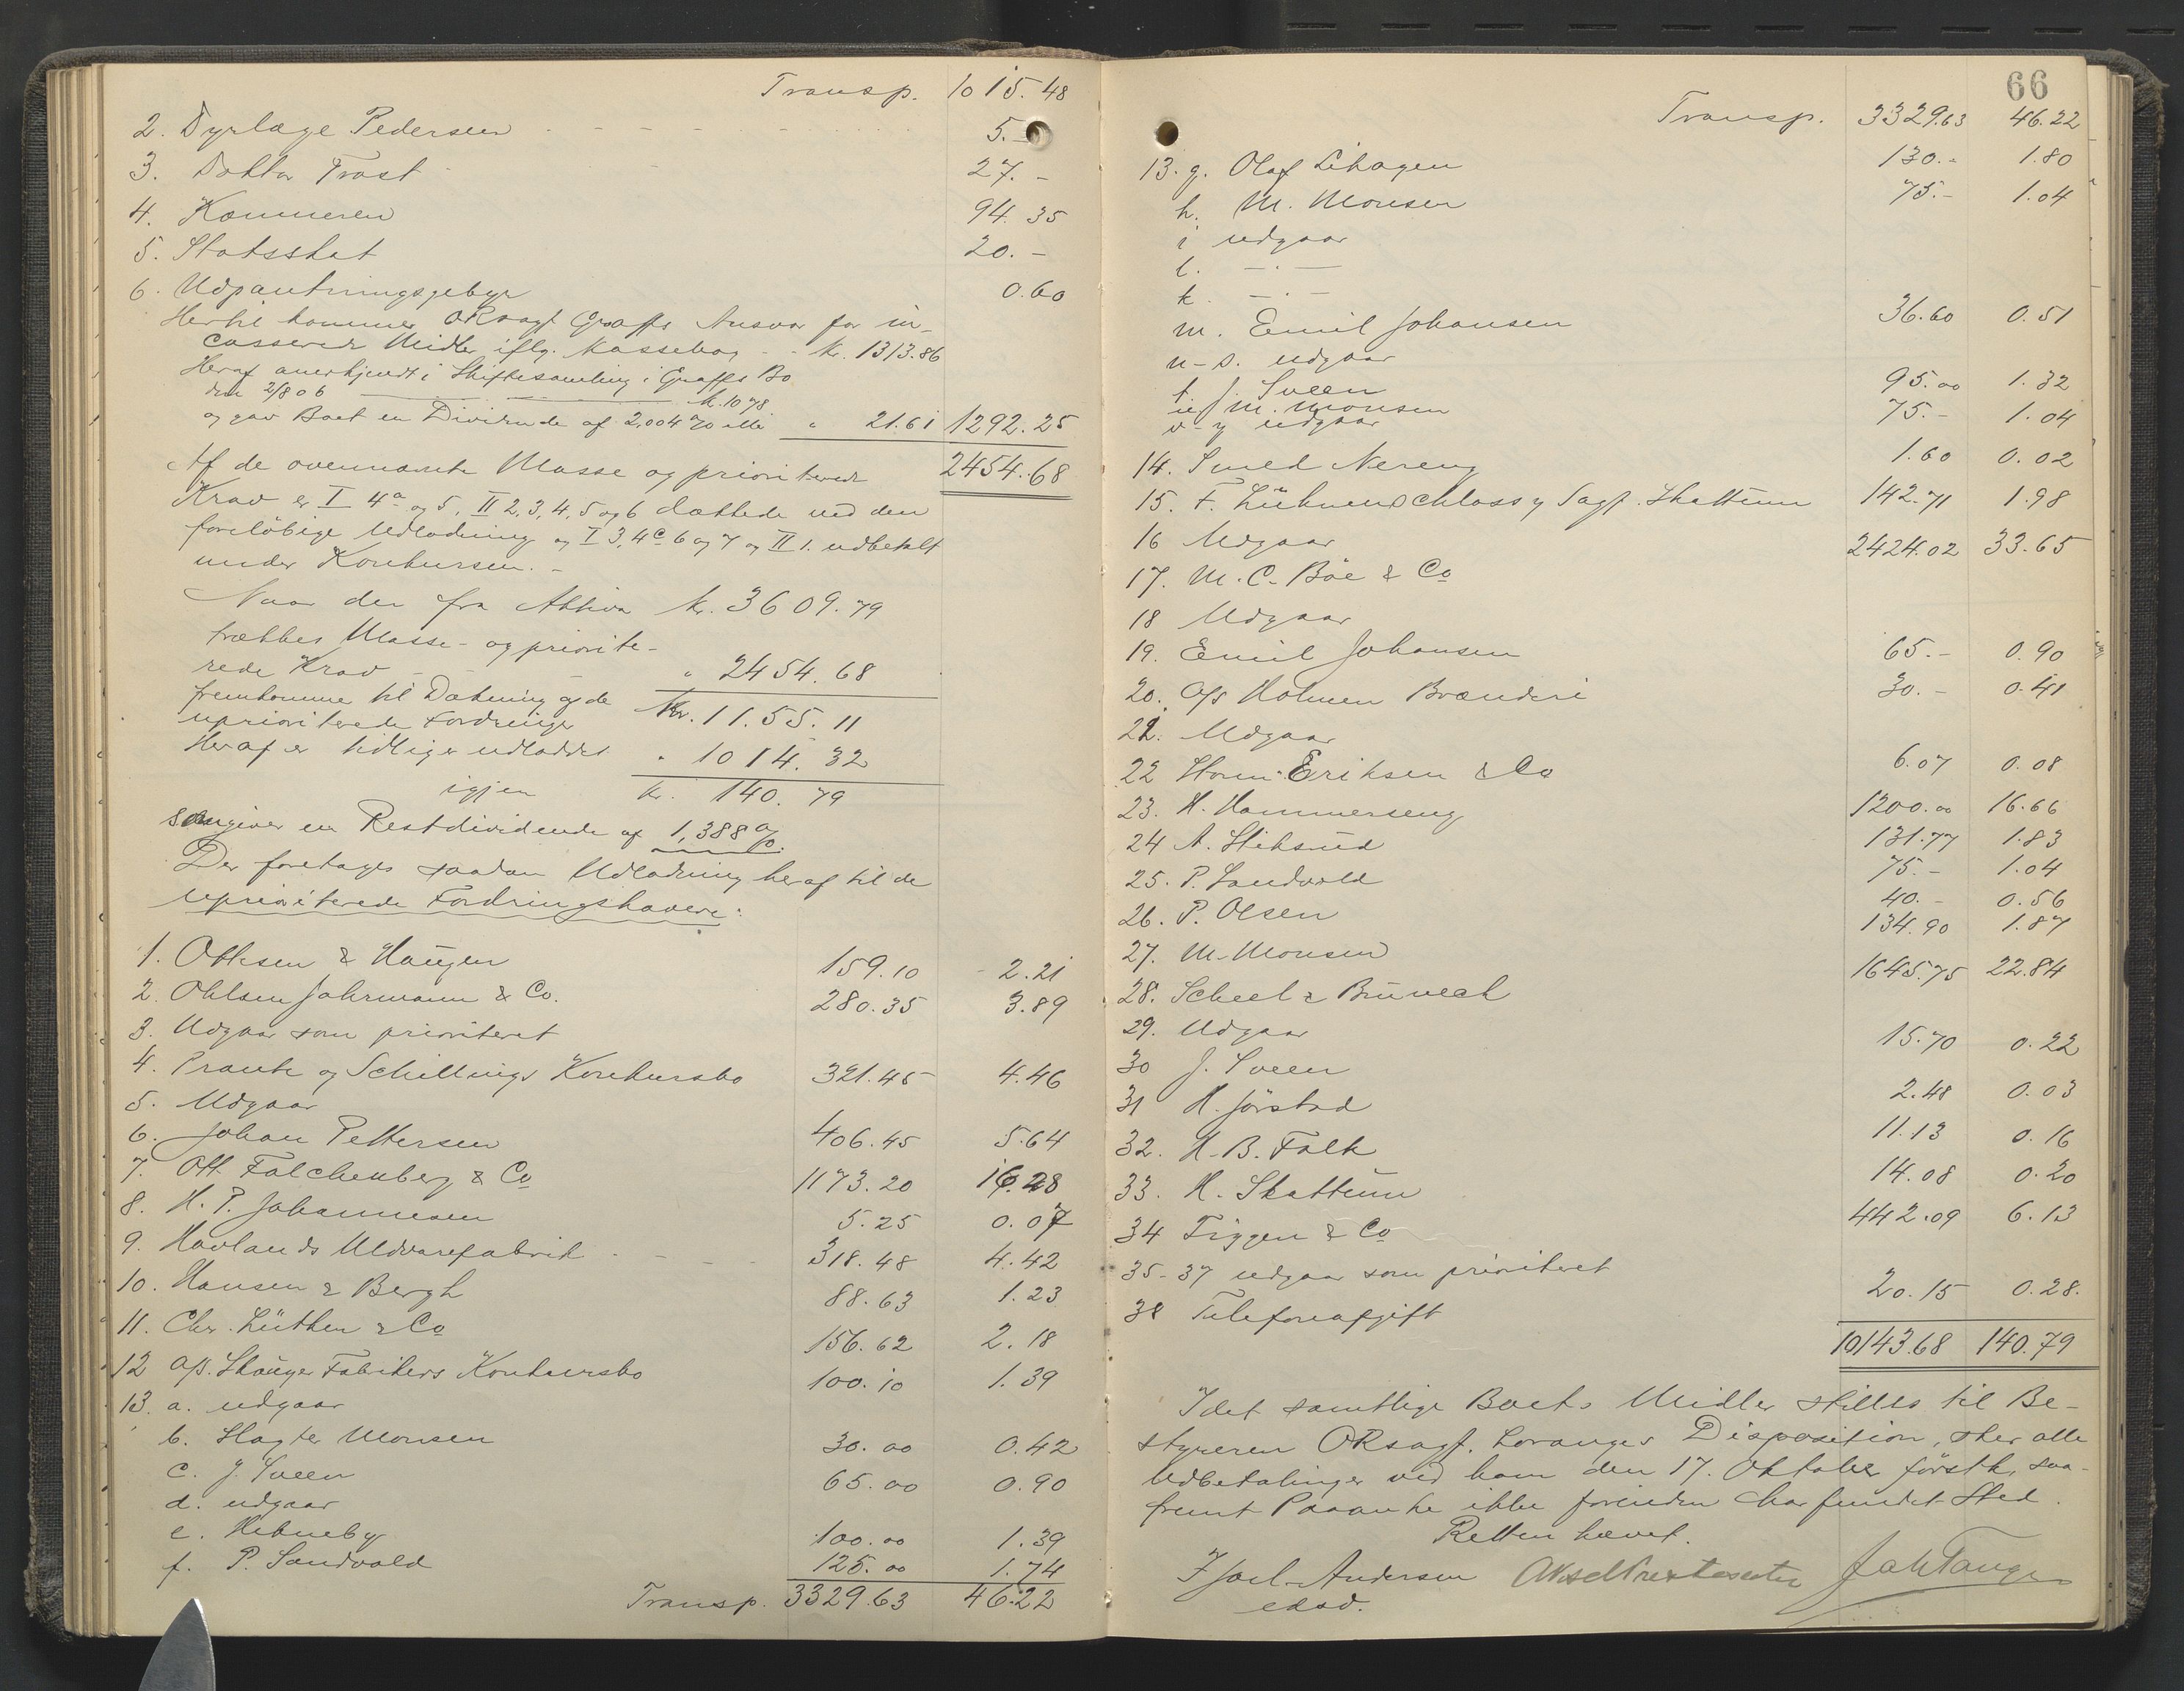 Transp. 1015.48
2. Dyrlæge Pedersen 5.–
3. Doktor Trost 27.–
4. Kæmneren 94.35
5. Statsskat 20.–
6. Udpantningsgebyr 0.60
Hertil kommer ORsagf Graffs Ansvar for in-
casserede Midler iflg. Kassebog kr. 1313.86
Heraf anerkjendt i Skiftesamling i Graffs Bo
den 2/8 06 kr. 1078.
og gav Boet en Dividende af 2,004 % eller " 21.61 1292.25
Af de ovennævnte Masse og prioriterede 2454.68
Krav er I 4a og 5, II 2, 3, 4, 5 og 6 dækkede ved den
foreløbige Udlodning og I 3, 4c 6 og 7 og II 1. udbetalt
under Konkursen. –
Naar der fra Aktiva kr. 3609.79
trækkes Masse- og priorite-
rede Krav " 2454.68
fremkommer til Dækning af de
uprioriterede Fordringer Kr. 1155.11
Heraf er tidligere udloddet " 1014.32
igjen kr. 140.79
som giver en Restdividende af 1,388 %.
Der foretages saadan Udlodning heraf til de
uprioriterede Fordringshavere:
1. Ottesen & Haugen 159.10 2.21
2. Ohlsen Jahrmann & Co. 280.35 3.89
3. Udgaar som prioriteret
4. Prante og Schillings Konkursbo 321.45 4.46
5. Udgaar
6. Johan Pettersen 406.45 5.64
7. Ott. Falchenberg & Co 1173.20 16.28
8. H. P. Johannesen 5.25 0.07
9. Hovlands Uldvarefabrik 318.48 4.42
10. Hansen & Bergh 88.63 1.23
11. Chr. Lüthen & Co 156.62 2.18
12 A/S. Skauger Fabrikers Konkursbo 100.10 1.39
13. a. udgaar
b. Slagter Monsen 30.00 0.42
c. J. Sveen 65.00 0.90
d. udgaar
e. Hebneby 100.00 1.39
f. P. Sandvold 125.00 1.74
Transp. 3329.63 46.22
66
Transp. 3329.63 46.22
13. g. Olaf Lihagen 130.– 1.80
h. M. Monsen 75.– 1.04
i udgaar
l. –·–
k. –·–
m. Emil Johansen 36.60 0.51
n–s. udgaar
t. J. Sveen 95.00 1.32
u M. Monsen 75.– 1.04
v–y udgaar
14. Smed Nereng 1.60 0.02
15. F. Lühnenschloss v Sagf. Skattum 142.71 1.98
16 Udgaar
17. M. C. Böe & Co 2424.02 33.65
18 Udgaar
19. Emil Johansen 65.– 0.90
20. A/S Holmen Brænderi 30.– 0.41
21. Udgaar
22 Horm. Eriksen & Co 6.07 0.08
23. H. Hammerseng 1200.00 16.66
24 A. Stiksrud 131.77 1.83
25. P. Sandvold 75.– 1.04
26. P. Olsen 40.– 0.56
27. M. Monsen 134.90 1.87
28. Scheel & Brunech 1645.75 22.84
29. Udgaar
30 J. Sveen 15.70 0.22
31 H. Jörstad 2.48 0.03
32. H. B. Falk 11.13 0.16
33. H. Skattum 14.08 0.20
34 Tiggen & Co 442.09 6.13
35–37 udgaar som prioriteret
38 Telefonafgift 20.15 0.28.
10143.68 140.79
Idet samtlige Boets Midler stilles til Be-
styreren ORsagf. Lovanges Disposition, sker alle
Udbetalinger ved ham den 17. Oktober förstk, saa-
fremt Paaanke ikke forinden har fundet Sted.
Retten hævet.
Andersen
edsv.